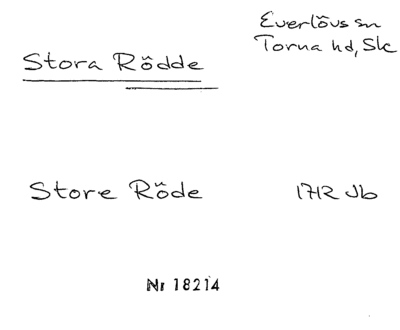 Everlövs sn
Torna hd, Sk
Stora Rödde
Store Röde 1712 Jb
Nr 18214